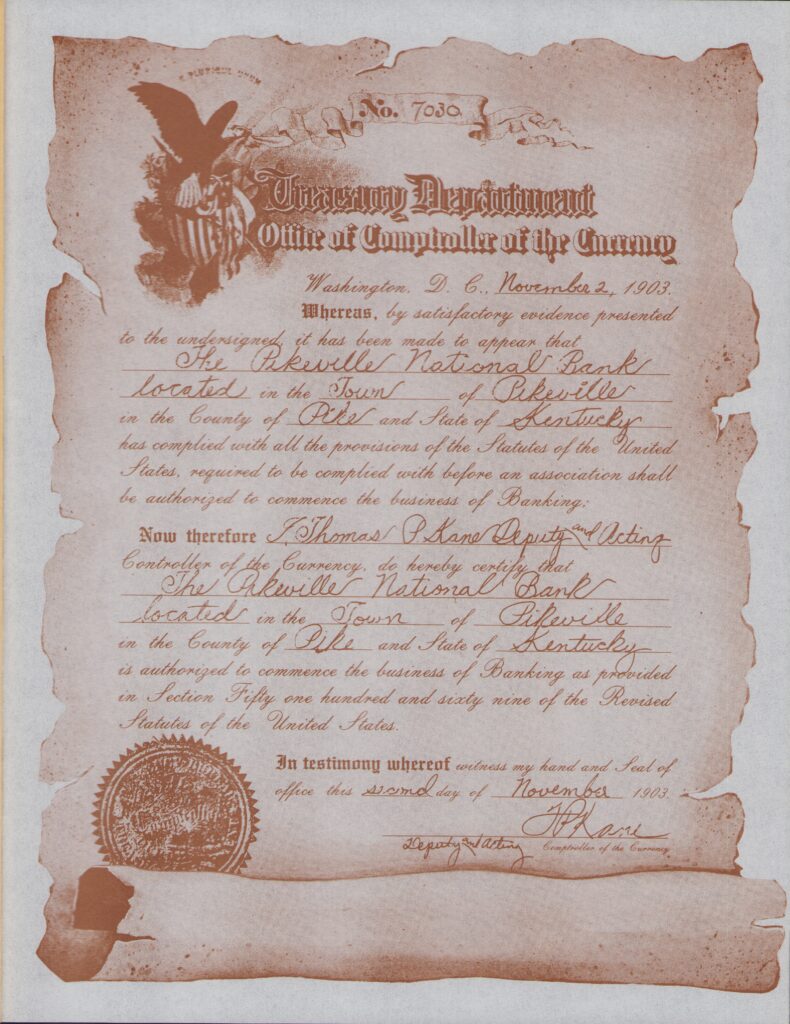 E PLURIBUS UNUM
No. 7030.
Treasury Department
Office of Comptroller of the Currency
Washington, D. C., November 2, 1903.
Whereas, by satisfactory evidence presented
to the undersigned, it has been made to appear that
The Pikeville National Bank
located in the Town of Pikeville
in the County of Pike and State of Kentucky
has complied with all the provisions of the Statutes of the United
States, required to be complied with before an association shall
be authorized to commence the business of Banking;
Now therefore I, Thomas P. Kane Deputy and Acting
Controller of the Currency, do hereby certify that
The Pikeville National Bank
located in the Town of Pikeville
in the County of Pike and State of Kentucky
is authorized to commence the business of Banking as provided
in Section Fifty one hundred and sixty nine of the Revised
Statutes of the United States.
In testimony whereof witness my hand and Seal of
office this second day of November 1903.
T P Kane
Deputy and Acting Comptroller of the Currency